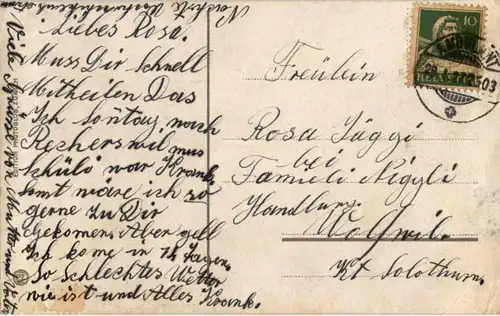 Liebes Rosa.
Muss Dir Schnell
Mitheilen Das
Ich sontag nach
Recherswil mus
Schüli war Krank
sonst ware ich so
gerne zu Dir
gekomen. Aber gell
Ich kome in 14 Tagen.
So Schlechtes Wetter
wie ist und Alles Krank.
Viele Grüsse von Mutter und
Fräulein
Rosa Jäggi
bei
Famieli Niggli
Handlung.
Wolfwil.
Kt Solothurn.
10
HELVETIA